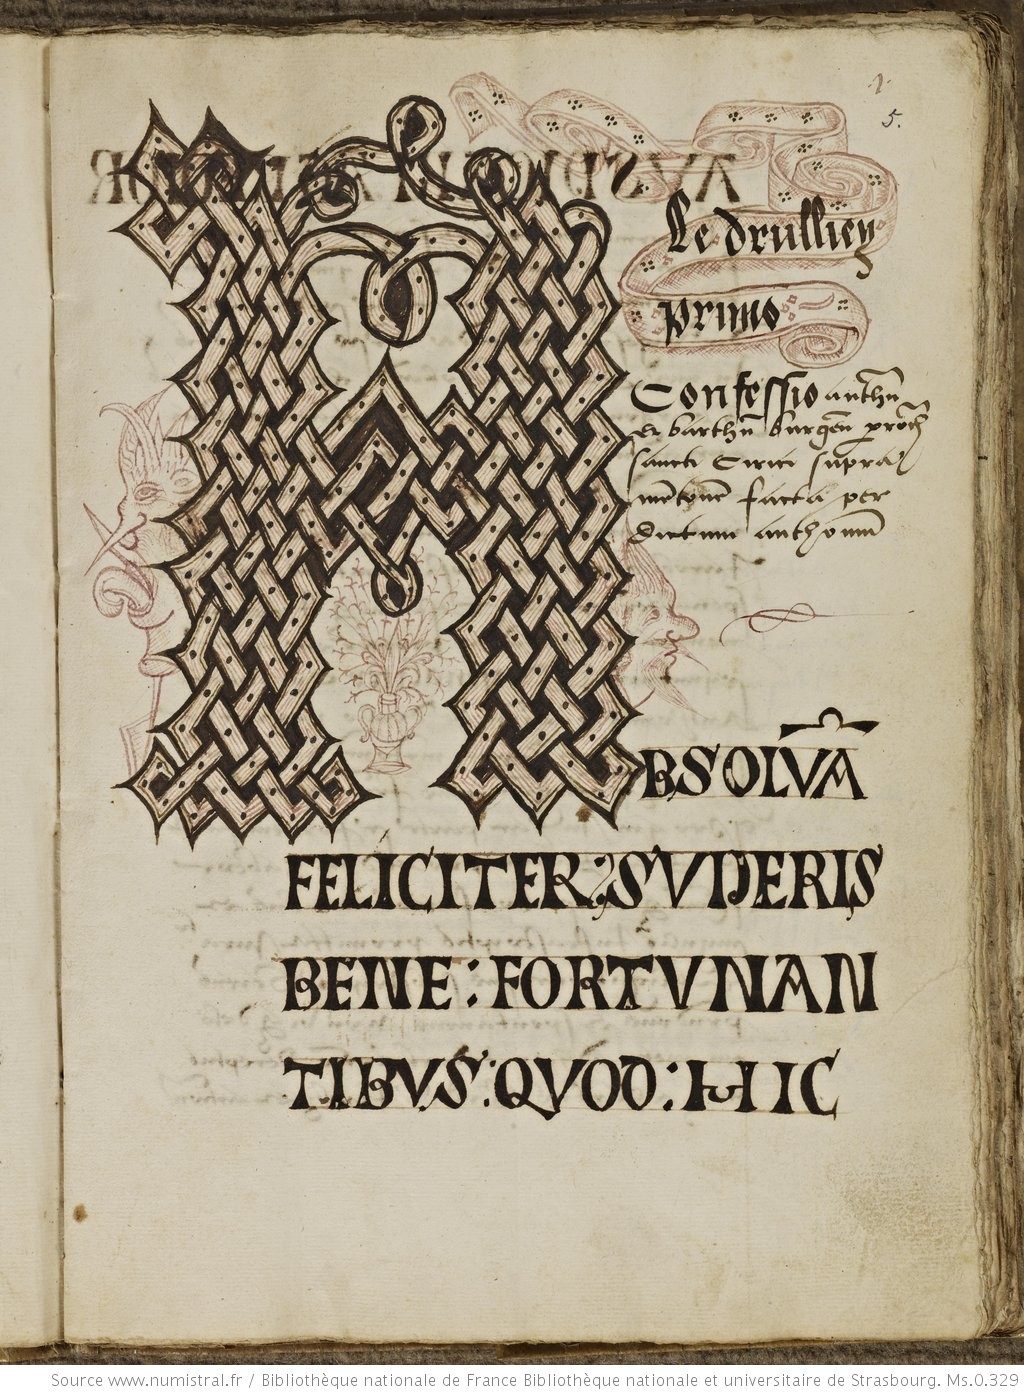 5.
Le drulliey
primo
Confessio anthū
et barthū burgeñ
sancti Cirici supra
facta per
dictum anthoniū
ABSOLVĀ
FELICITER: SVPERIS
BENE: FORTVNAN
TIBVS: QVOD: HIC
Source www.numistral.fr / Bibliothèque nationale de France Bibliothèque nationale et universitaire de Strasbourg. Ms.0.329